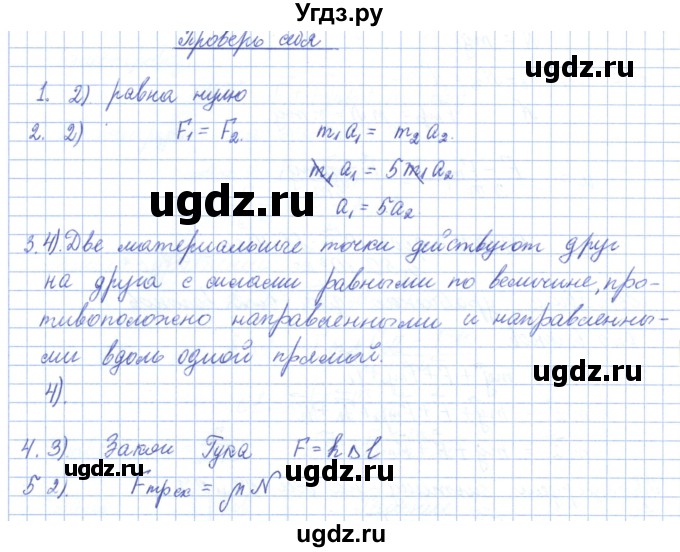 Угдз.ру
Проверь себя
1. 2) равна нулю
2. 2) F₁ = F₂. m₁a₁ = m₂a₂.
m₁a₁ = 5m₁a₂
ugdz.ru ugdz.ru
a₁ = 5a₂
3.4). Две материальные точки действуют друг
на друга с силами равными по величине, про-
тивоположено направленными и направленны-
ми вдоль одной прямой.
ugdz.ru
4).
4. 3) Закон Гука F = kΔl
ugdz.ru ugdz.ru
5 2). Fтрск = μN
ugdz.ru